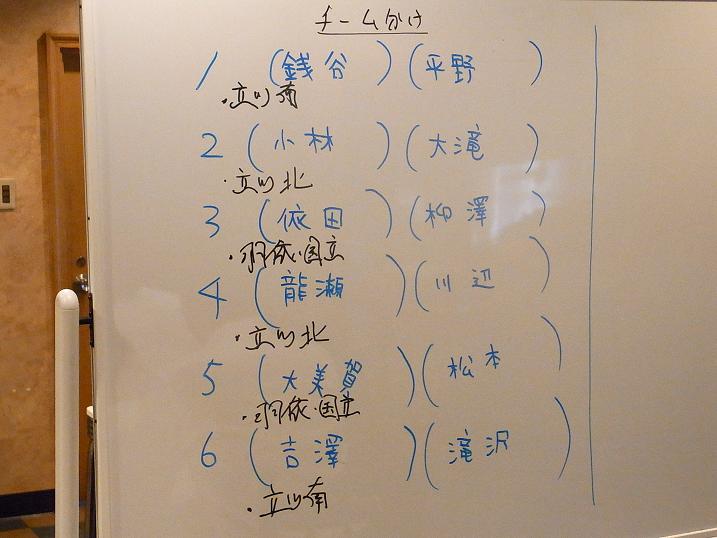 チーム分け
1 (銭谷) (平野)
・立川南
2 (小林) (大滝)
・立川北
3 (依田) (柳澤)
・羽衣・国立
4 (龍瀬) (川辺)
・立川北
5 (大美賀) (松本)
・羽衣・国立
6 (吉澤) (滝沢)
・立川南